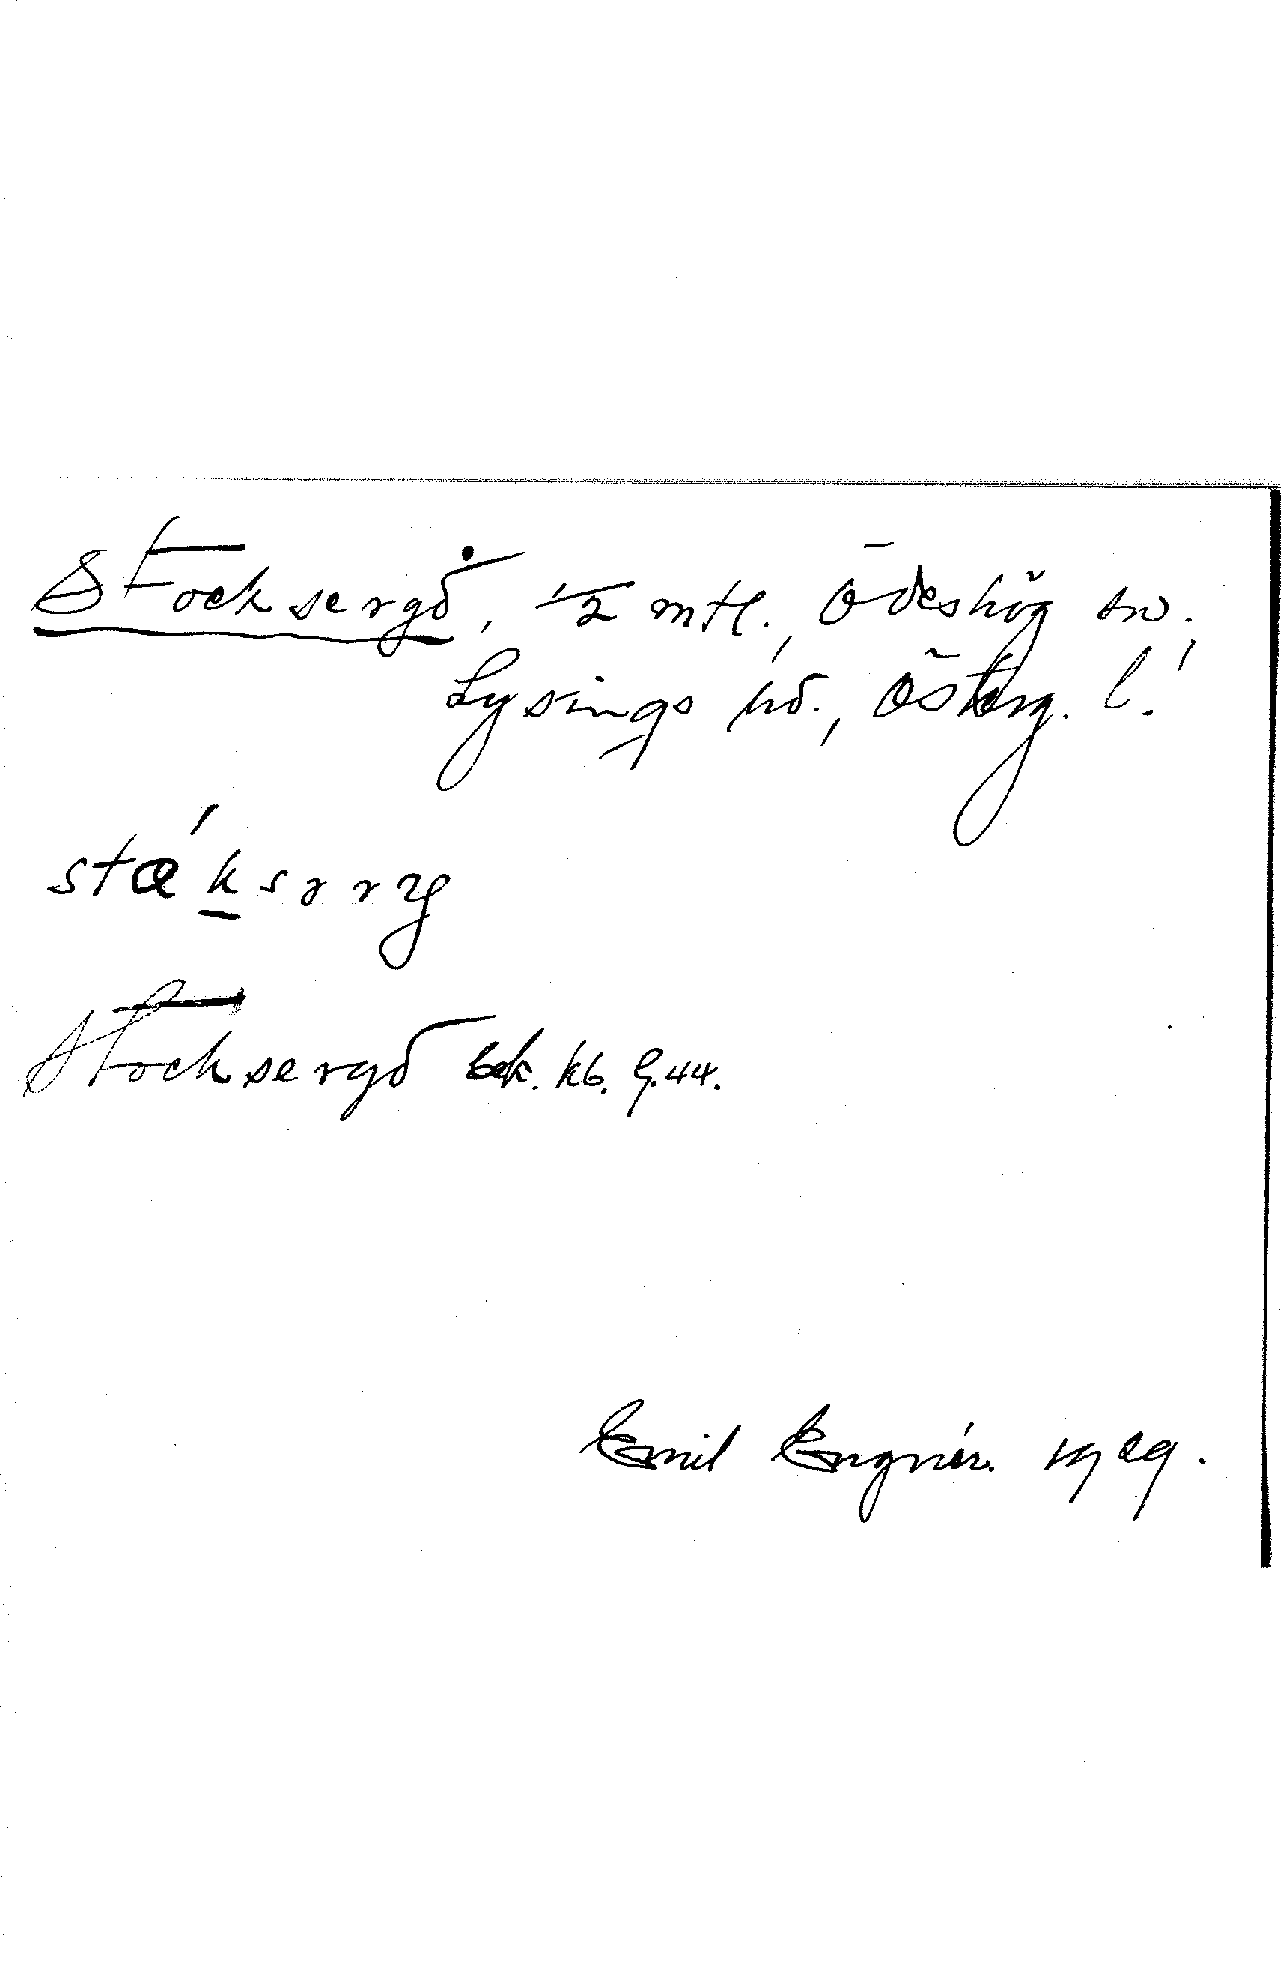 Stocksergd, 1/2 mtl., Ödeshög sn.,
Lysings hd., Österg. l.
Stocksergd bek. kb. G.44.
Emil Engnér. 1929.